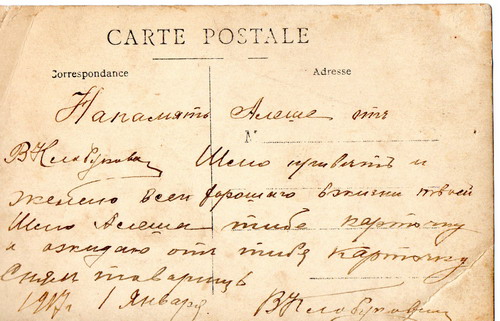 CARTE POSTALE
Correspondance
Adresse
На память Алеше отъ
N
В Клобукова Шлю приветъ и
желаю всего хорошаго в жизни твоей
Шлю Алеша тебе карточку
и ожидаю от тебе карточку
Сням товарищь
1917 г 1 Января.